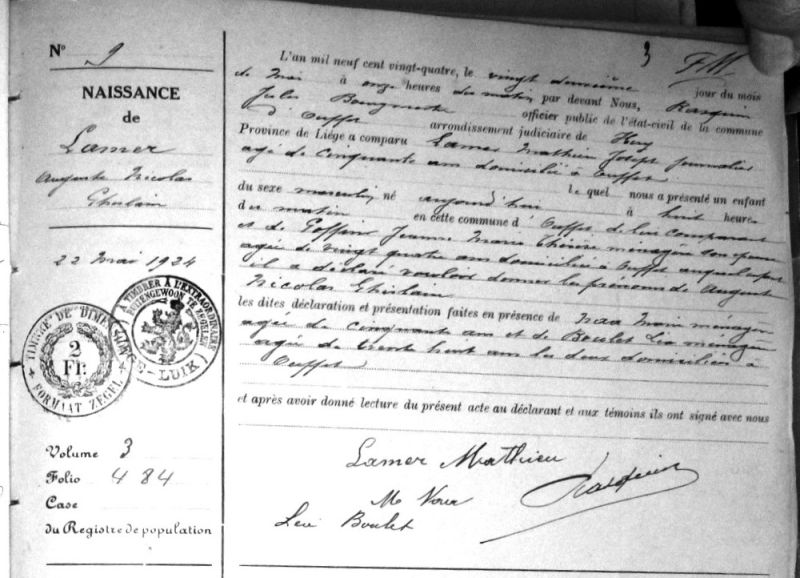 N° 9
NAISSANCE
de
Lamer
Auguste Nicolas
Ghislain
22 Mai 1924
TIMBRE DE DIMENSION
2
Fr.
FORMAAT ZEGEL
A TIMBRER À L'EXTRAORDINAIRE
BUITENGEWOON TE ZEGELEN
LUIK
Volume 3
Folio 484
Case
du Registre de population
3 FM
L'an mil neuf cent vingt-quatre, le vingt deuxième jour du mois
de Mai à onze heures du matin, par devant Nous, Rasquin
Jules officier public de l'état-civil de la commune
d'Ouffet arrondissement judiciaire de Huy
Province de Liége a comparu Lamer Mathieu Joseph journalier
agé de cinquante ans domicilié à Ouffet
le quel nous a présenté un enfant
du sexe masculin, né aujourd'hui à huit heures
du matin en cette commune d'Ouffet, de lui comparant
et de Goffin Jeanne Marie Thérèse ménagère son épouse
agée de vingt quatre ans domiciliée à Ouffet auquel enfant
il a déclaré vouloir donner les prénoms de Auguste
Nicolas Ghislain
les dites déclaration et présentation faites en présence de ménagère
agée de cinquante ans et de Boulet Léa ménagère
agée de trente huit ans les deux domiciliées à
Ouffet
et après avoir donné lecture du présent acte au déclarant et aux témoins ils ont signé avec nous
Lamer Mathieu
Rasquin
M
Boulet